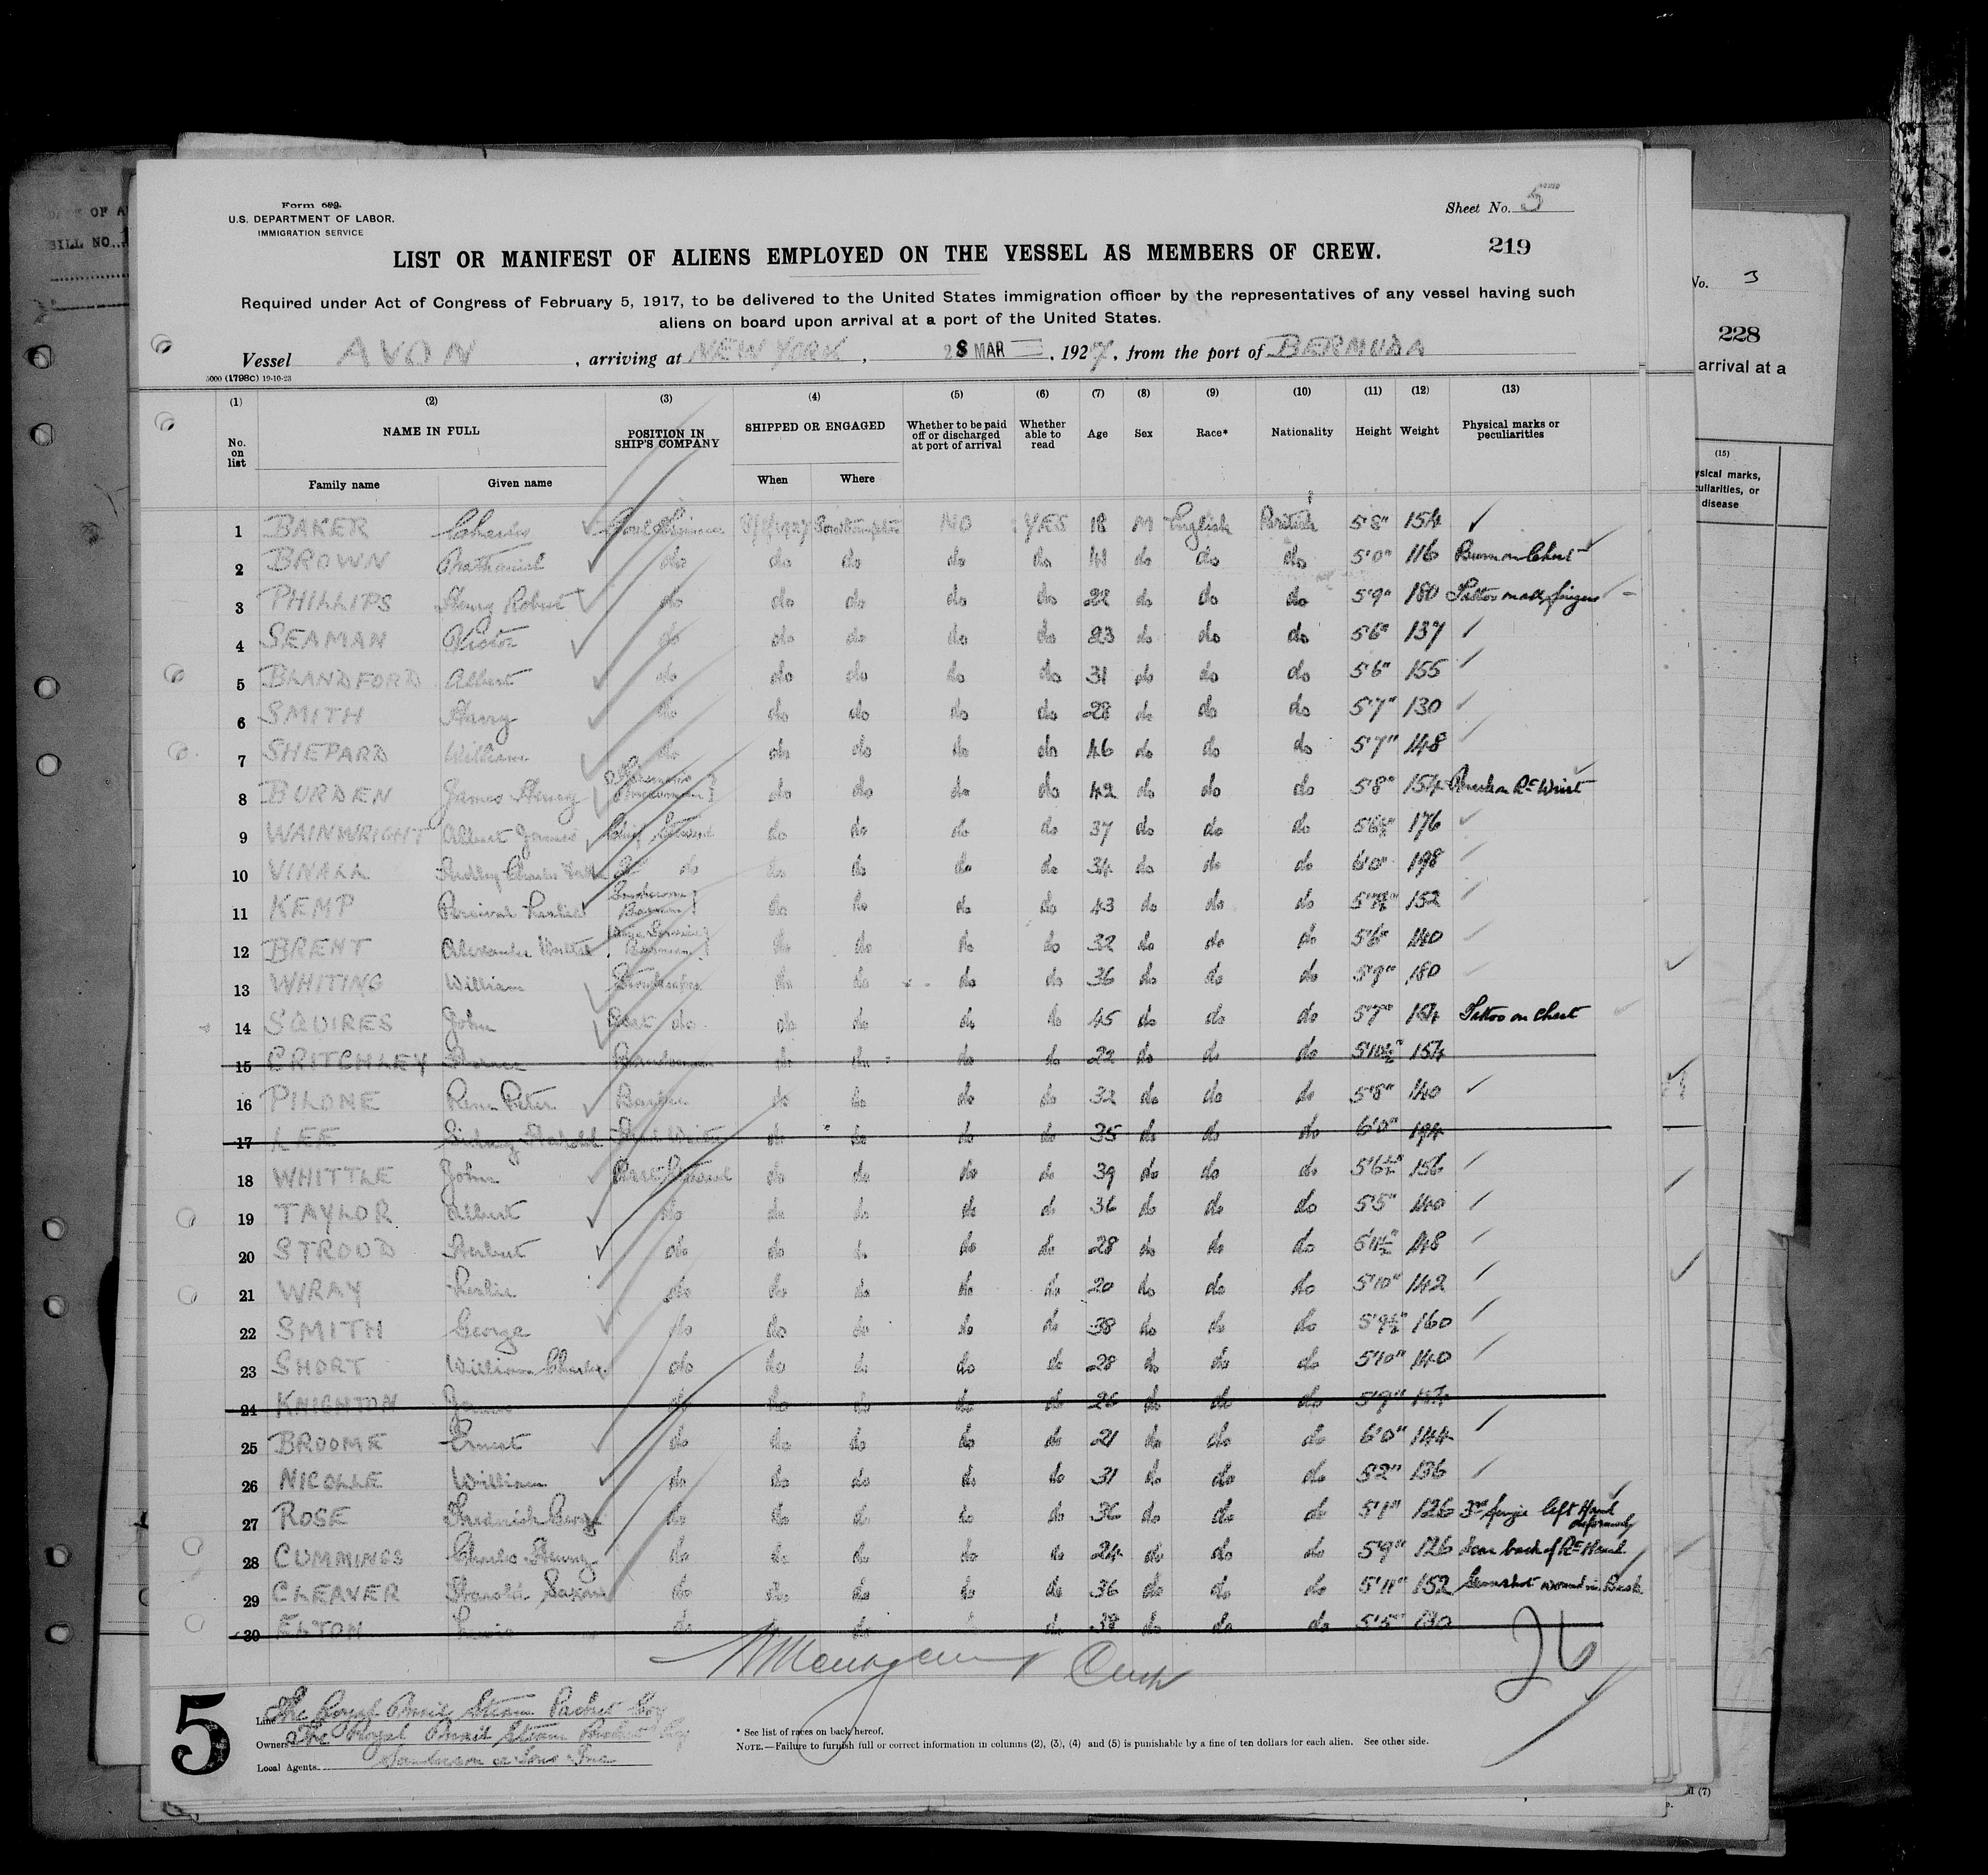 Form 689.
U.S. DEPARTMENT OF LABOR.
IMMIGRATION SERVICE
Sheet No. 5
219
LIST OR MANIFEST OF ALIENS EMPLOYED ON THE VESSEL AS MEMBERS OF CREW.
Required under Act of Congress of February 5, 1917, to be delivered to the United States immigration officer by the representatives of any vessel having such
aliens on board upon arrival at a port of the United States.
Vessel AVON, arriving at NEW YORK, 28 MAR, 1927, from the port of BERMUDA
5000 (1798C) 19-10-23
(1) (2) (3) (4) (5) (6) (7) (8) (9) (10) (11) (12) (13)
No. on list NAME IN FULL POSITION IN SHIP'S COMPANY SHIPPED OR ENGAGED Whether to be paid off or discharged at port of arrival Whether able to read Age Sex Race* Nationality Height Weight Physical marks or peculiarities
Family name Given name When Where
1 BAKER Charles Southampton NO YES 18 M English British 5'8" 154
2 BROWN Nathaniel do do do do do 41 do do do 5'0" 116 Burn on Chest
3 PHILLIPS Henry Robert do do do do do 22 do do do 5'9" 180 Tattoo on all fingers
4 SEAMAN Victor do do do do do 23 do do do 5'6" 137
5 BLANDFORD Albert do do do do do 31 do do do 5'6" 155
6 SMITH Harry do do do do do 28 do do do 5'7" 130
7 SHEPARD William do do do do do 46 do do do 5'7" 148
8 BURDEN James Henry do do do do 42 do do do 5'8" 154 Rt Wrist
9 WAINWRIGHT Albert James do do do do 37 do do do 176
10 VINALL Charles do do do do do 34 do do do 6'0" 198
11 KEMP Percival Leslie do do do do 43 do do do 152
12 BRENT Alexander do do do do 32 do do do 5'6" 140
13 WHITING William Storekeeper do do do do 36 do do do 5'9" 180
14 SQUIRES John Asst do do do do do 45 do do do 5'7" 154 Tattoo on Chest
15 CRITCHLEY do do do do 22 do do do 5'10½" 154
16 PILONE Peter do do do do 32 do do do 5'8" 140
17 LEE Sidney Harold do do do do 35 do do do 6'0" 194
18 WHITTLE John do do do do 39 do do do 5'6½" 156
19 TAYLOR Albert do do do do do 36 do do do 5'5" 140
20 STROUD Herbert do do do do do 28 do do do 148
21 WRAY Leslie do do do do do 20 do do do 5'10" 142
22 SMITH George do do do do do 38 do do do 5'9½" 160
23 SHORT William Charles do do do do do 28 do do do 5'10" 140
24 KNIGHTON James do do do do do 26 do do do 5'9"
25 BROOME Ernest do do do do do 21 do do do 6'0" 144
26 NICOLLE William do do do do do 31 do do do 5'2" 136
27 ROSE Frederick George do do do do do 36 do do do 5'1" 126 3rd left Hand
28 CUMMINGS Charles Henry do do do do do 24 do do do 5'9" 126 Scar back of Rt Hand
29 CLEAVER Harold do do do do do 36 do do do 5'11" 152 Gunshot wound in Back
30 ELTON do do do 38 do do do 5'5" 130
26
5
Line The Royal Mail Steam Packet Coy
Owners The Royal Mail Steam Packet Coy
Local Agents Sanderson & Sons Inc
* See list of races on back hereof.
NOTE.—Failure to furnish full or correct information in columns (2), (3), (4) and (5) is punishable by a fine of ten dollars for each alien. See other side.
No. 3
228
arrival at a
(15)
disease
BILL NO.